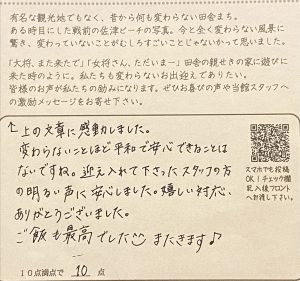 有名な観光地でもなく、昔から何も変わらない田舎まち。
ある時目にした戦前の佐津ビーチの写真。今と全く変わらない風景に
驚き、変わっていないことがむしろすごいことじゃないかって思いました。
「大将、また来たで」「女将さん、ただいまー」田舎の親せきの家に遊びに
来た時のように。私たちも変わらないお出迎えでありたい。
皆様のお声が私たちの励みになります。ぜひお喜びの声や当館スタッフへ
の激励メッセージをお寄せ下さい。
↑上の文章に感動しました。
変わらないことほど平和で安心できることは
ないですね。迎え入れて下さったスタッフの方
の明るい声に安心しました。嬉しい対応、
ありがとうございました。
ご飯も最高でした またきます♪
スマホでも投稿
OK!チェック欄
記入後フロント
へお渡し下さい。
10点満点で 10 点